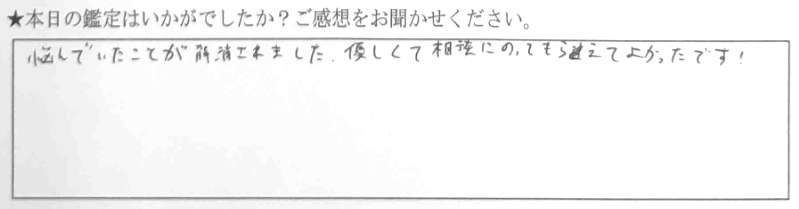 ★本日の鑑定はいかがでしたか？ご感想をお聞かせください。
悩んでいたことが解消されました。優しくて相談にのってもらえてよかったです！